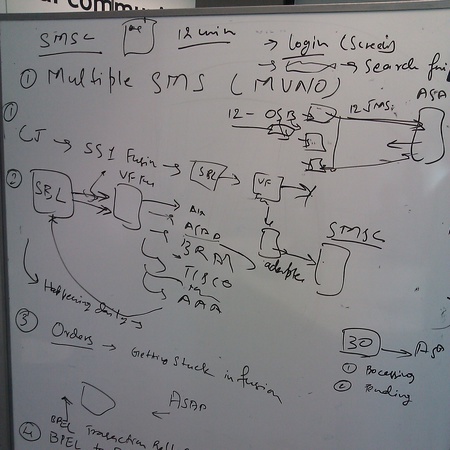 SMSC 12 min
→ Login (Screen)
→ Search
① Multiple SMS (MVNO)
ASAP
① 12 - OSB 12 SMS
CJ → SSI Fusion → SBL → VF
② SBL
Air
ASAP
BRM
TIBCO
AAA
adapter
SMSC
Happening daily
③ Orders → Getting stuck in fusion
30 → ASAP
① Processing
② Pending
ASAP
④ BPEL Transaction Roll
BPEL to